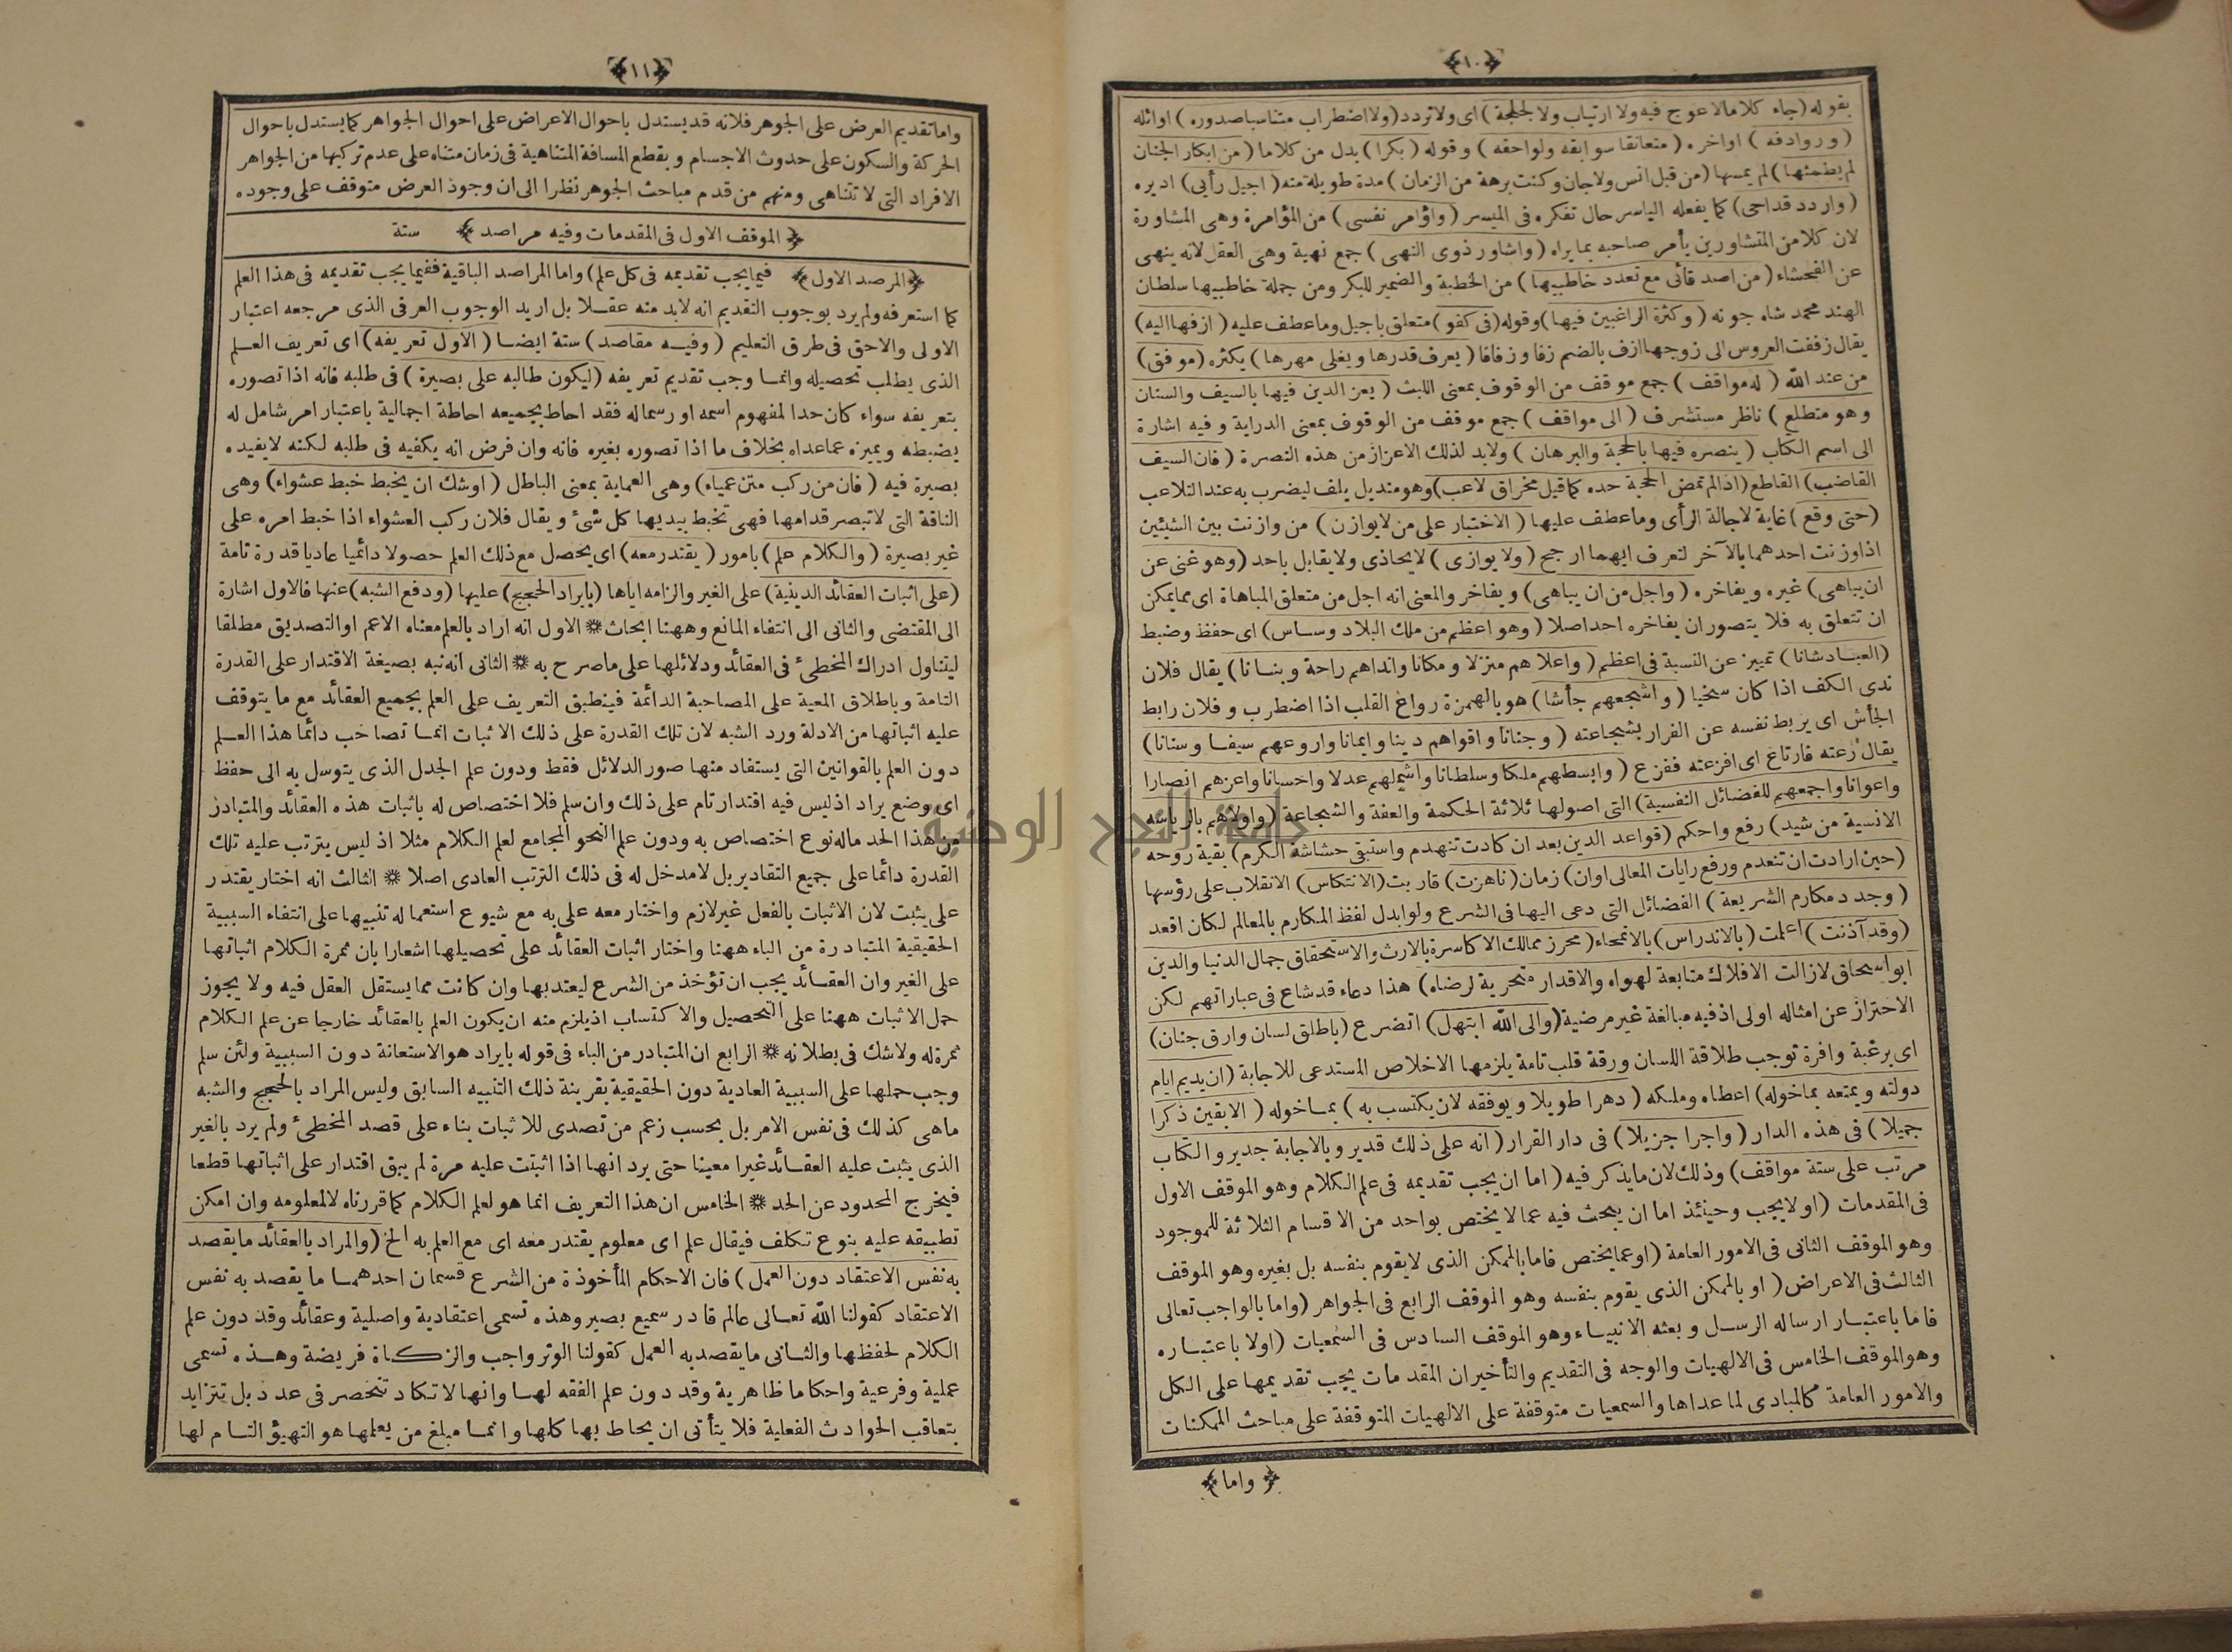 ﴿١٠﴾
بقوله (جاء كلاما لا عوج فيه ولا ارتياب ولا لجلجة) اى ولا تردد (ولا اضطراب متناسبا صدوره) اوائله
(وروادفه) اواخره (متعانقا سوابقه ولواحقه) وقوله (بكرا) بدل من كلاما (من ابكار الجنان
لم يطمثها) لم يمسها (من قبل انس ولا جان وكنت برهة من الزمان) مدة طويلة منه (اجيل رأيى) اديره
(واردد قداحى) كما يفعله الياسر حال تفكره فى الميسر (واؤامر نفسى) من المؤامرة وهى المشاورة
لان كلا من المتشاورين يأمر صاحبه بما يراه (واشاور ذوى النهى) جمع نهية وهى العقل لانه ينهى
عن الفحشاء (من اصدقائى مع تعدد خاطبيها) من الخطبة والضمير للبكر ومن جملة خاطبيها سلطان
الهند محمد شاه جونه (وكثرة الراغبين فيها) وقوله (فى كفو) متعلق باجيل وما عطف عليه (ازفها اليه)
يقال زففت العروس الى زوجها ازف بالضم زفا وزفافا (يعرف قدرها ويغلى مهرها) يكثره (موفق)
من عند الله (له مواقف) جمع موقف من الوقوف بمعنى اللبث (يعز الدين فيها بالسيف والسنان
وهو متطلع) ناظر مستشرف (الى مواقف) جمع موقف من الوقوف بمعنى الدراية وفيه اشارة
الى اسم الكتاب (ينصره فيها بالحجة والبرهان) ولابد لذلك الاعزاز من هذه النصرة (فان السيف
القاضب) القاطع (اذا لم تمض الحجة حده كما قيل مخراق لاعب) وهو منديل يلف ليضرب به عند التلاعب
(حتى وقع) غاية لاجالة الرأى وما عطف عليها (الاختيار على من لا يوازن) من وازنت بين الشيئين
اذا وزنت احدهما بالآخر لتعرف ايهما ارجح (ولا يوازى) لا يحاذى ولا يقابل باحد (وهو غنى عن
ان يباهى) غيره ويفاخره (واجل من ان يباهى) ويفاخر والمعنى انه اجل من متعلق المباهاة اى مما يمكن
ان تتعلق به فلا يتصور ان يفاخره احد اصلا (وهو اعظم من ملك البلاد وساس) اى حفظ وضبط
(العباد شانا) تمييز عن النسبة فى اعظم (واعلاهم منزلا ومكانا وانداهم راحة وبنانا) يقال فلان
ندى الكف اذا كان سخيا (واشجعهم جأشا) هو بالهمزة رواغ القلب اذا اضطرب وفلان رابط
الجأش اى يربط نفسه عن الفرار بشجاعته (وجنانا واقواهم دينا وايمانا واروعهم سيفا وسنانا)
يقال رعته فارتاع اى افزعته ففزع (وابسطهم ملكا وسلطانا واشملهم عدلا واحسانا واعزهم انصارا
واعوانا واجمعهم للفضائل النفسية) التى اصولها ثلاثة الحكمة والعفة والشجاعة (واولاهم بالرياسة
الانسية من شيد) رفع واحكم (قواعد الدين بعد ان كادت تنهدم واستبقى حشاشة الكرم) بقية روحه
(حين ارادت ان تنعدم ورفع رايات المعالى اوان) زمان (ناهزت) قاربت (الانتكاس) الانقلاب على رؤسها
(وجدد مكارم الشريعة) الفضائل التى دعى اليها فى الشرع ولو ابدل لفظ المكارم بالمعالم لكان اقعد
(وقد آذنت) اعلمت (بالاندراس) بالانمحاء (محرز ممالك الاكاسرة بالارث والاستحقاق جمال الدنيا والدين
ابو اسحاق لازالت الافلاك متابعة لهواه والاقدار متحرية لرضاه) هذا دعاء قد شاع فى عباراتهم لكن
الاحتراز عن امثاله اولى اذ فيه مبالغة غير مرضية (والى الله ابتهل) اتضرع (باطلق لسان وارق جنان)
اى برغبة وافرة توجب طلاقة اللسان ورقة قلب تامة يلزمها الاخلاص المستدعى للاجابة (ان يديم ايام
دولته ويمتعه بما خوله) اعطاه وملكه (دهرا طويلا ويوفقه لان يكتسب به) بما خوله (الابقين ذكرا
جميلا) فى هذه الدار (واجرا جزيلا) فى دار القرار (انه على ذلك قدير وبالاجابة جدير والكتاب
مرتب على ستة مواقف) وذلك لان ما يذكر فيه (اما ان يجب تقديمه فى علم الكلام وهو الموقف الاول
فى المقدمات (او لا يجب وحينئذ اما ان يبحث فيه عما لا يختص بواحد من الاقسام الثلاثة للموجود
وهو الموقف الثانى فى الامور العامة (او عما يختص فاما بالممكن الذى لا يقوم بنفسه بل بغيره وهو الموقف
الثالث فى الاعراض (او بالممكن الذى يقوم بنفسه وهو الموقف الرابع فى الجواهر (واما بالواجب تعالى
فاما باعتبار ارساله الرسل وبعثه الانبياء وهو الموقف السادس فى السمعيات (اولا باعتباره
وهو الموقف الخامس فى الالهيات والوجه فى التقديم والتأخير ان المقدمات يجب تقديمها على الكل
والامور العامة كالمبادى لما عداها والسمعيات متوقفة على الالهيات المتوقفة على مباحث الممكنات
﴿واما﴾
﴿١١﴾
واما تقديم العرض على الجوهر فلانه قد يستدل باحوال الاعراض على احوال الجواهر كما يستدل باحوال
الحركة والسكون على حدوث الاجسام وبقطع المسافة المتناهية فى زمان متناه على عدم تركبها من الجواهر
الافراد التى لا تتناهى ومنهم من قدم مباحث الجوهر نظرا الى ان وجود العرض متوقف على وجوده
﴿الموقف الاول فى المقدمات وفيه مراصد﴾ ستة
﴿المرصد الاول﴾ فيما يجب تقديمه فى كل علم) واما المراصد الباقية ففيما يجب تقديمه فى هذا العلم
كما استعرفه ولم يرد بوجوب التقديم انه لابد منه عقلا بل اريد الوجوب العرفى الذى مرجعه اعتبار
الاولى والاحق فى طرق التعليم (وفيه مقاصد) ستة ايضا (الاول تعريفه) اى تعريف العلم
الذى يطلب تحصيله وانما وجب تقديم تعريفه (ليكون طالبه على بصيرة) فى طلبه فانه اذا تصوره
بتعريفه سواء كان حدا لمفهوم اسمه او رسما له فقد احاط بجميعه احاطة اجمالية باعتبار امر شامل له
يضبطه ويميزه عما عداه بخلاف ما اذا تصوره بغيره فانه وان فرض انه يكفيه فى طلبه لكنه لا يفيده
بصيرة فيه (فان من ركب متن عمياء) وهى العماية بمعنى الباطل (اوشك ان يخبط خبط عشواء) وهى
الناقة التى لا تبصر قدامها فهى تخبط بيديها كل شئ ويقال فلان ركب العشواء اذا خبط امره على
غير بصيرة (والكلام علم) بامور (يقتدر معه) اى يحصل مع ذلك العلم حصولا دائميا عاديا قدرة تامة
(على اثبات العقائد الدينية) على الغير والزامه اياها (بايراد الحجج) عليها (ودفع الشبه) عنها فالاول اشارة
الى المقتضى والثانى الى انتفاء المانع وههنا ابحاث ۞ الاول انه اراد بالعلم معناه الاعم او التصديق مطلقا
ليتناول ادراك المخطئ فى العقائد ودلائلها على ما صرح به ۞ الثانى انه نبه بصيغة الاقتدار على القدرة
التامة وباطلاق المعية على المصاحبة الدائمة فينطبق التعريف على العلم بجميع العقائد مع ما يتوقف
عليه اثباتها من الادلة ورد الشبه لان تلك القدرة على ذلك الاثبات انما تصاحب دائما هذا العلم
دون العلم بالقوانين التى يستفاد منها صور الدلائل فقط ودون علم الجدل الذى يتوسل به الى حفظ
اى وضع يراد اذ ليس فيه اقتدار تام على ذلك وان سلم فلا اختصاص له باثبات هذه العقائد والمتبادر
من هذا الحد ماله نوع اختصاص به ودون علم النحو المجامع لعلم الكلام مثلا اذ ليس يترتب عليه تلك
القدرة دائما على جميع التقادير بل لا مدخل له فى ذلك الترتب العادى اصلا ۞ الثالث انه اختار يقتدر
على يثبت لان الاثبات بالفعل غير لازم واختار معه على به مع شيوع استعماله تنبيها على انتفاء السببية
الحقيقية المتبادرة من الباء ههنا واختار اثبات العقائد على تحصيلها اشعارا بان ثمرة الكلام اثباتها
على الغير وان العقائد يجب ان تؤخذ من الشرع ليعتد بها وان كانت مما يستقل العقل فيه ولا يجوز
حمل الاثبات ههنا على التحصيل والاكتساب اذ يلزم منه ان يكون العلم بالعقائد خارجا عن علم الكلام
ثمرة له ولا شك فى بطلانه ۞ الرابع ان المتبادر من الباء فى قوله بايراد هو الاستعانة دون السببية ولئن سلم
وجب حملها على السببية العادية دون الحقيقية بقرينة ذلك التنبيه السابق وليس المراد بالحجج والشبه
ماهى كذلك فى نفس الامر بل بحسب زعم من تصدى للاثبات بناء على قصد المخطئ ولم يرد بالغير
الذى يثبت عليه العقائد غيرا معينا حتى يرد انها اذا اثبتت عليه مرة لم يبق اقتدار على اثباتها قطعا
فيخرج المحدود عن الحد ۞ الخامس ان هذا التعريف انما هو لعلم الكلام كما قررناه لا لمعلومه وان امكن
تطبيقه عليه بنوع تكلف فيقال علم اى معلوم يقتدر معه اى مع العلم به الخ (والمراد بالعقائد ما يقصد
به نفس الاعتقاد دون العمل) فان الاحكام المأخوذة من الشرع قسمان احدهما ما يقصد به نفس
الاعتقاد كقولنا الله تعالى عالم قادر سميع بصير وهذه تسمى اعتقادية واصلية وعقائد وقد دون علم
الكلام لحفظها والثانى ما يقصد به العمل كقولنا الوتر واجب والزكاة فريضة وهذه تسمى
عملية وفرعية واحكاما ظاهرية وقد دون علم الفقه لها وانها لا تكاد تنحصر فى عدد بل تتزايد
بتعاقب الحوادث الفعلية فلا يتأتى ان يحاط بها كلها وانما مبلغ من يعلمها هو التهيؤ التام لها
جامعة النجاح الوطنية